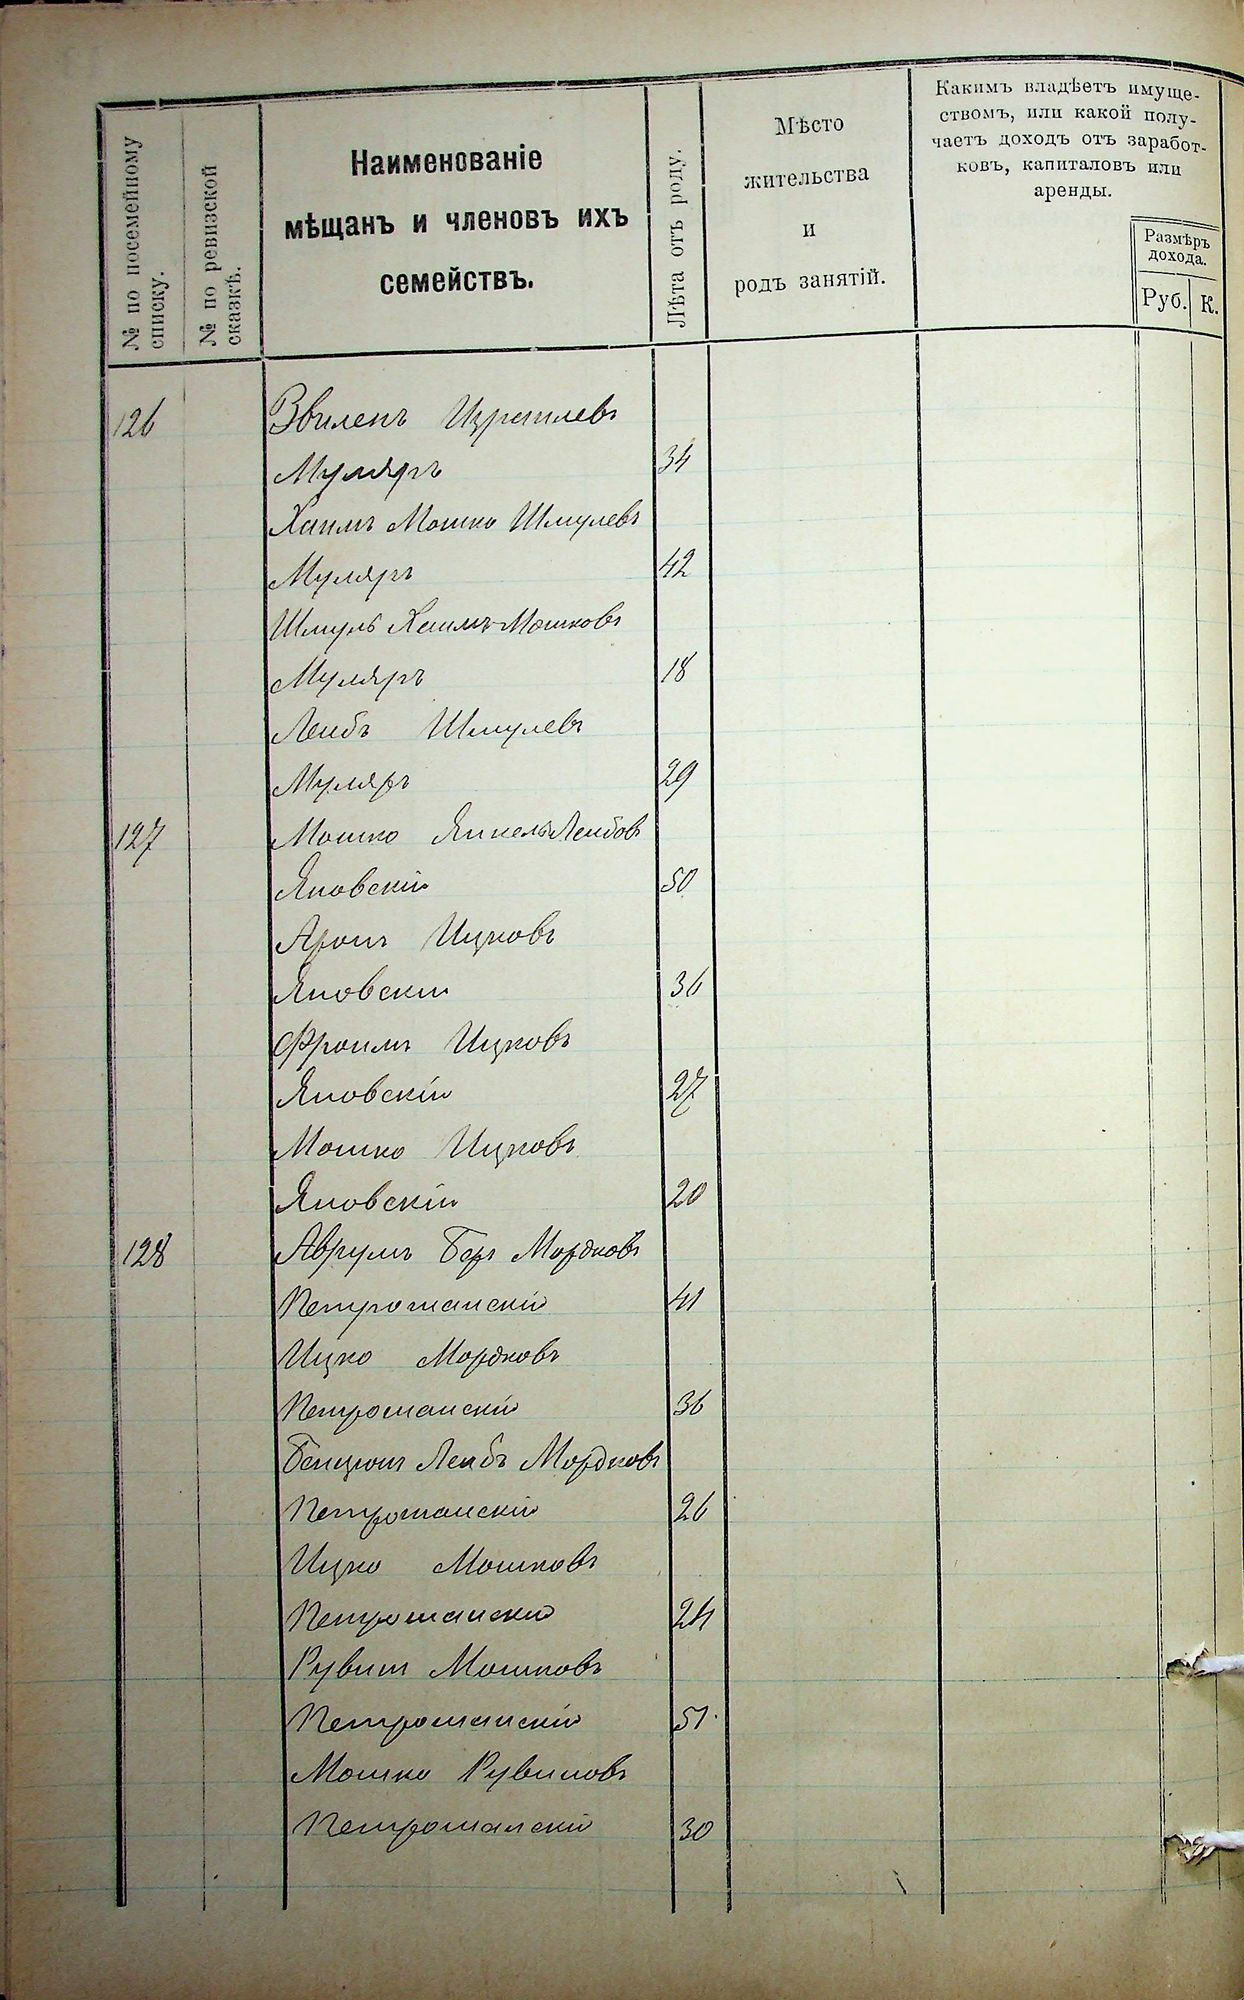 № по посемейному списку.
№ по ревизской сказкѣ.
Наименованіе
мѣщанъ и членовъ ихъ
семействъ.
Лѣта отъ роду.
Мѣсто
жительства
и
родъ занятій.
Какимъ владѣетъ имуще-
ствомъ, или какой полу-
чаетъ доходъ отъ заработ-
ковъ, капиталовъ или
аренды.
Размѣръ
дохода.
Руб. К.
126 Израилевъ
Муляръ 34
Хаимъ Мошко Шмулевъ
Муляръ 42
Шмуль Хаимъ-Мошковъ
Муляръ 18
Лейбъ Шмулевъ
Муляръ 29
127 Мошко Янкель Лейбовъ
Яновскій 50
Аронъ Ицковъ
Яновскій 36
Фроимъ Ицковъ
Яновскій 27
Мошко Ицковъ
Яновскій 20
128 Аврумъ Беръ Мордковъ
Петрошанскій 41
Ицко Мордковъ
Петрошанскій 36
Бенціонъ Лейбъ Мордковъ
Петрошанскій 26
Ицко Мошковъ
Петрошанскій 24
Рувинъ Мошковъ
Петрошанскій 51
Мошко Рувиновъ
Петрошанскій 30